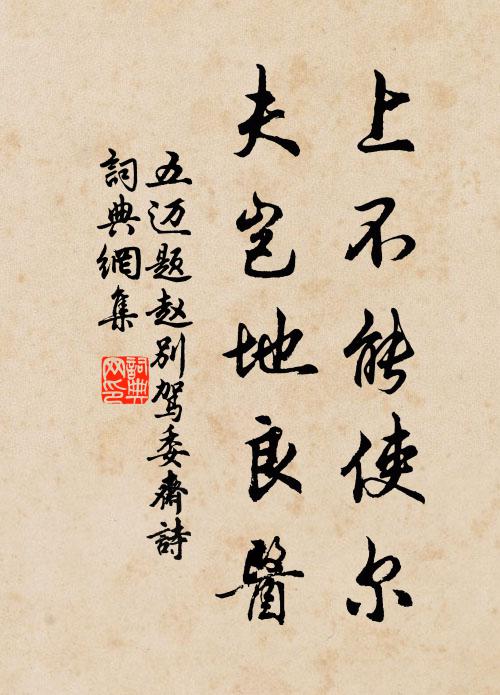 上不能使尔
夫岂地良醫
五迈题赵别驾委齋詩
詞典網集
詞典
网印